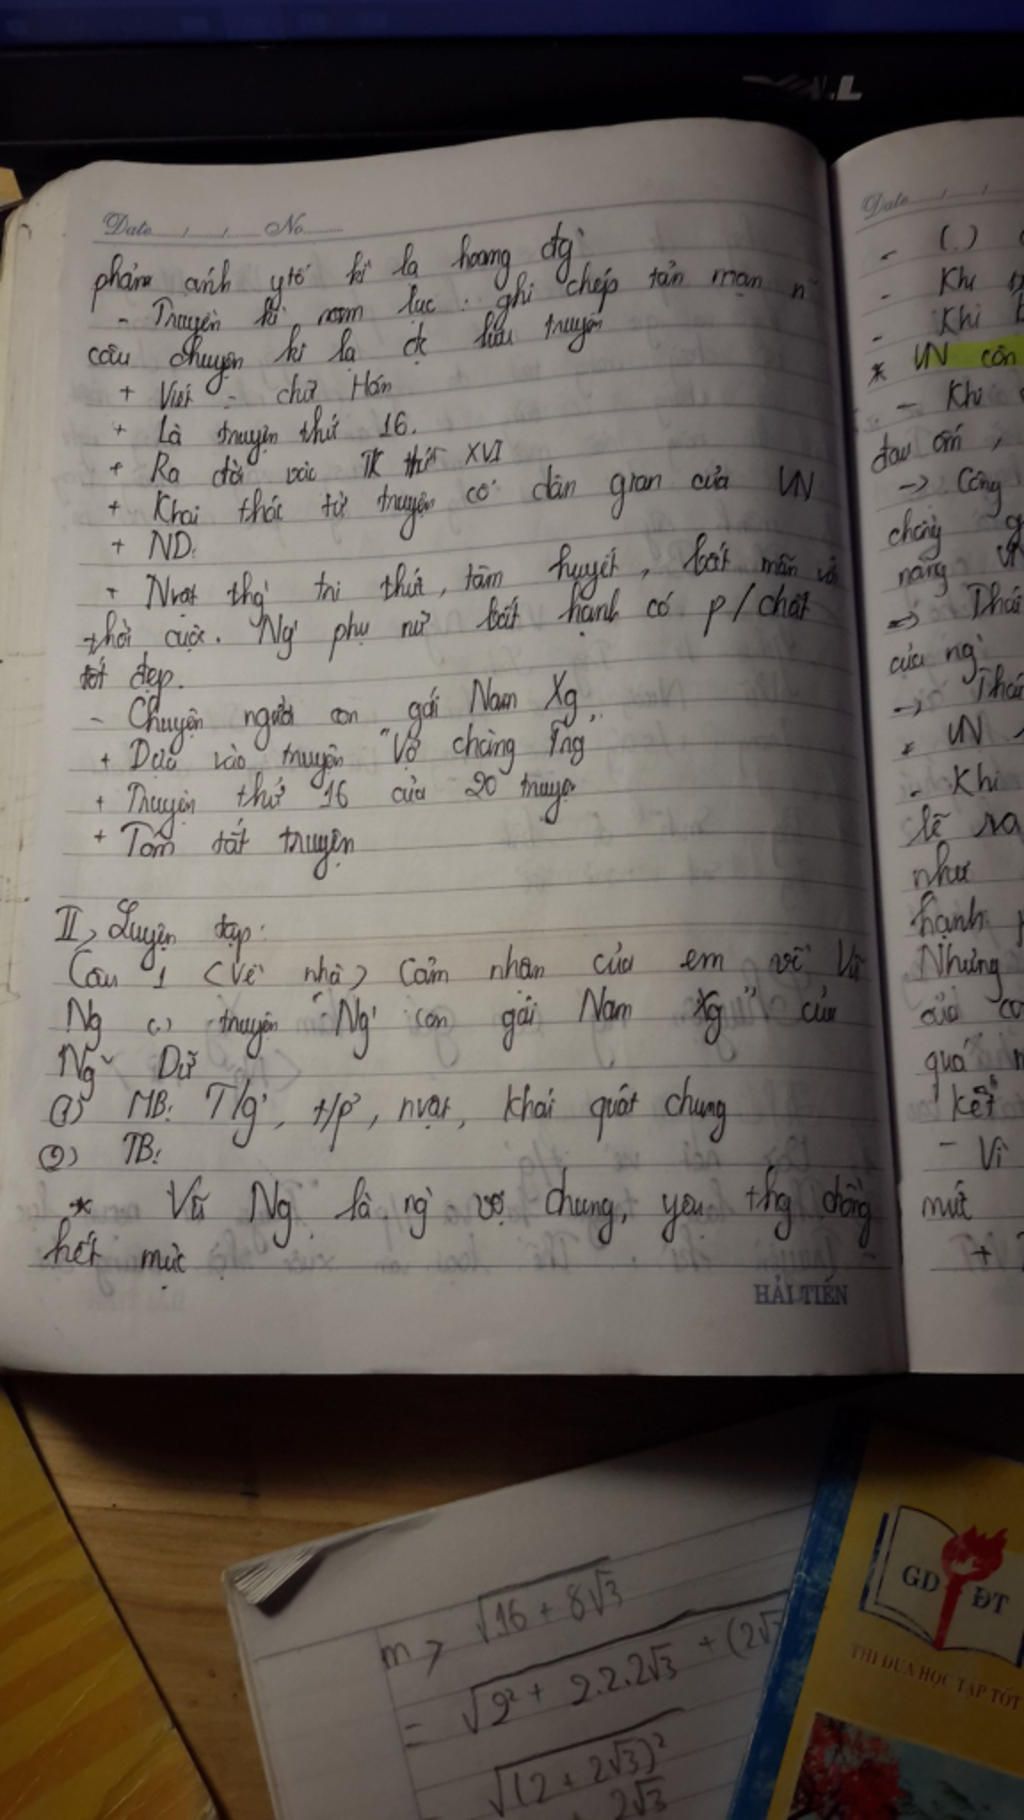 LL
Date / / No
phản ánh ytố kì lạ hoang đg`
- Truyền kì nam lục : ghi chép tản mạn n~
câu chuyện kì lạ đc lưu truyền
+ Viết - chữ Hán
+ Là truyện thứ 16.
+ Ra đời vào TK thứ XVI
+ Khai thác từ truyện cổ dân gian của VN
+ ND:
+ Nvật thg` tri thức, tâm huyết, bất mãn với
thời cuộc. Ng` phụ nữ bất hạnh có p/chất
tốt đẹp.
- Chuyện người con gái Nam Xg
+ Dựa vào truyện "Vợ chàng Trg"
+ Truyện thứ 16 của 20 truyện
+ Tóm tắt truyện
II, Luyện tập:
Câu 1 (Về nhà) Cảm nhận của em về Vũ
Ng (.) truyện "Ng` con gái Nam Xg" của
Ng~ Dữ
(1) MB: T/g`, t/p², nvật, khái quát chung
(2) TB:
* Vũ Ng là ng` vợ chung, yêu thg chồng
hết mực
HẢI TIẾN
Date / /
- (.)
- Khi
- Khi
* VN còn
- Khi
đau ốm,
-> Công
chàng
nàng VN
=> Thái
của ng`
-> Thái
* VN
- Khi
lẽ ra
như
hạnh p
Nhưng
của co
quá
kết
- Vì
mức
+
m > √16 + 8√3
= √2² + 2.2.2√3 + (2√3
√(2 + 2√3)²
2√3
GD ĐT
THI ĐUA HỌC TẬP TỐT